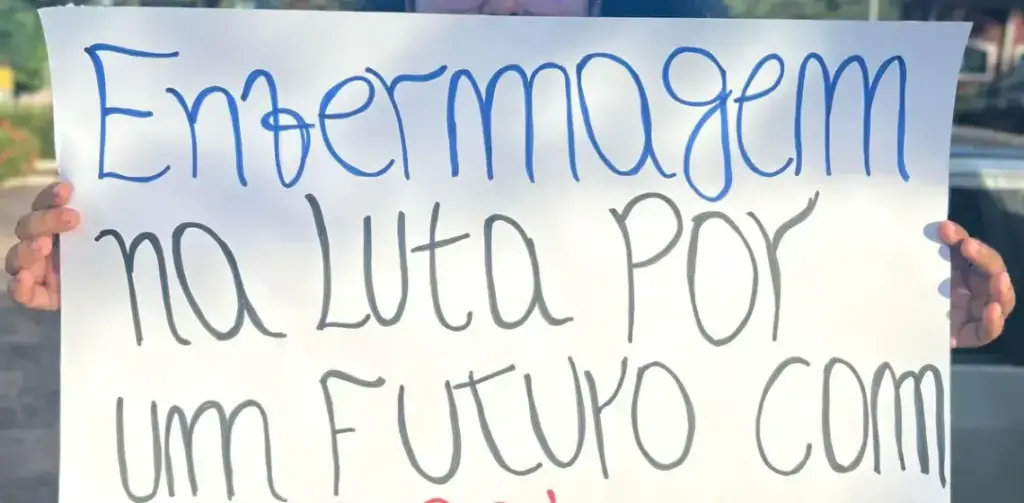 Enfermagem
na Luta por
um Futuro com